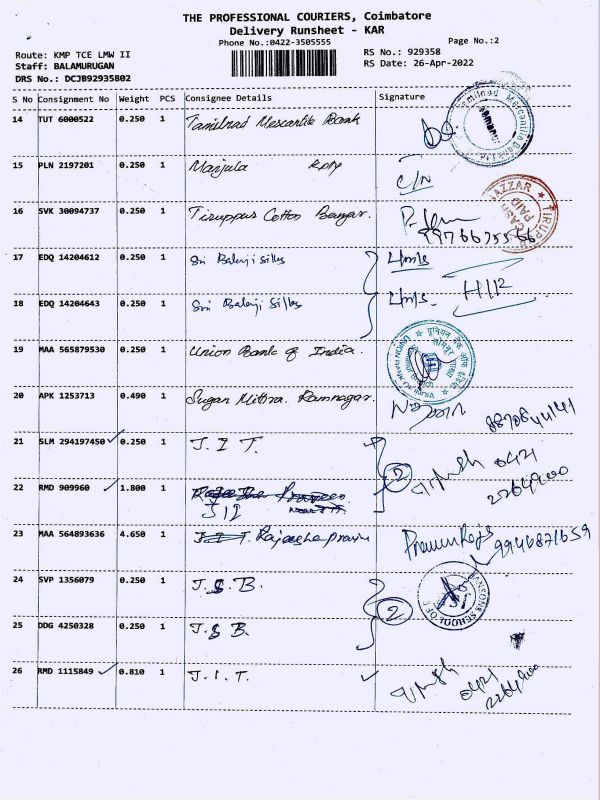 THE PROFESSIONAL COURIERS, Coimbatore
Delivery Runsheet - KAR
Phone No.:0422-3505555
Page No.:2
Route: KMP TCE LMW II
RS No.: 929358
Staff: BALAMURUGAN
RS Date: 26-Apr-2022
DRS No.: DCJB92935802
S No Consignment No Weight PCS Consignee Details Signature
14 TUT 6000522 0.250 1 Tamilnad Mercantile Bank
15 PLN 2197201 0.250 1 Manjula
16 SVK 30094737 0.250 1 Tiruppur Cotton Bazzar.
17 EDQ 14204612 0.250 1 Sri Balaji Silks
18 EDQ 14204643 0.250 1 Sri Balaji Silks
19 MAA 565879530 0.250 1 Union Bank of India.
20 APK 1253713 0.490 1 Sugan Mithra. Ramnagar.
21 SLM 294197450 0.250 1 J. I T.
22 RMD 909960 1.800 1
2
0421
2264900
23 MAA 564893636 4.650 1
9946871659
24 SVP 1356079 0.250 1 J. S. B.
2
25 DDG 4250328 0.250 1 J. S B.
26 RMD 1115849 0.810 1 J. I. T.
0421
2264900